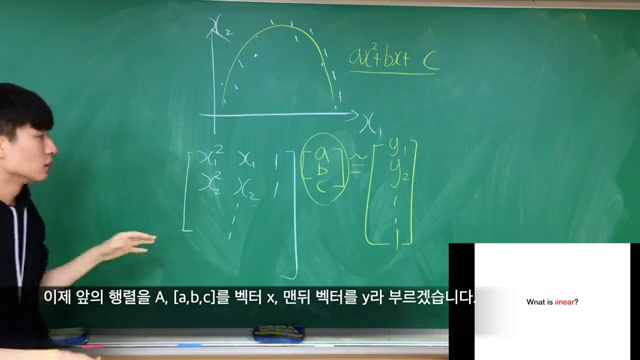 x₂
ax²+bx+ c
x₁
x₁² x₁ 1 a ≈ y₁
x₂² x₂ 1 b y₂
c
이제 앞의 행렬을 A, [a,b,c]를 벡터 x, 맨뒤 벡터를 y라 부르겠습니다.
What is linear?